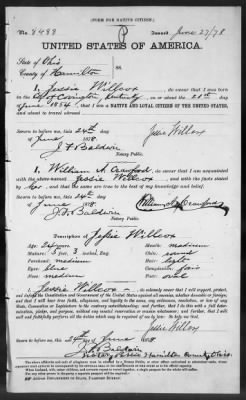 [FORM FOR NATIVE CITIZEN.]
No. 8488 Issued June 27/78
UNITED STATES OF AMERICA.
State of Ohio
County of Hamilton ss.
I, Jessie Willcox, do swear that I was born
in the City of Covington Kentucky on or about the 21st day
of June 1854; that I am a NATIVE AND LOYAL CITIZEN OF THE UNITED STATES,
and about to travel abroad
Sworn to before me, this 24th day
of June 1878. Jessie Willcox
J. F. Baldwin
Notary Public.
I, William A. Crawford, do swear that I am
acquainted with the above-named Jessie Willcox, and with the facts stated
by her, and that the same are true to the best of my knowledge and belief.
Sworn to before me, this 24th day
of June 1878. William A. Crawford
J. F. Baldwin
Notary Public.
Description of Jessie Willcox
Age: 24 years Mouth: medium
Stature: 5 feet, 3 inches, Eng. Chin: round
Forehead: medium Hair: light
Eyes: blue Complexion: fair
Nose: medium Face: oval
I, Jessie Willcox, do solemnly swear that I will support, protect,
and defend the Constitution and Government of the United States against all enemies, whether domestic or foreign;
and that I will bear true faith, allegiance, and loyalty to the same, any ordinance, resolution, or law of any State,
Convention, or Legislature to the contrary notwithstanding; and further, that I do this with a full determination,
pledge, and purpose, without any mental reservation or evasion whatsoever; and further, that I will well and
faithfully perform all the duties which may be required of me by law: So help me God.
Jessie Willcox
Sworn to before me, this 24th day
of June 1878
J. F. Baldwin
Notary Public Hamilton County Ohio